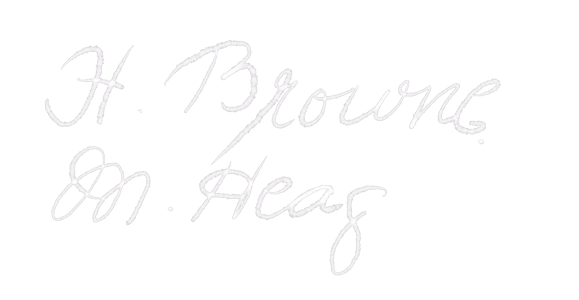 H. Browne.
M. Heag